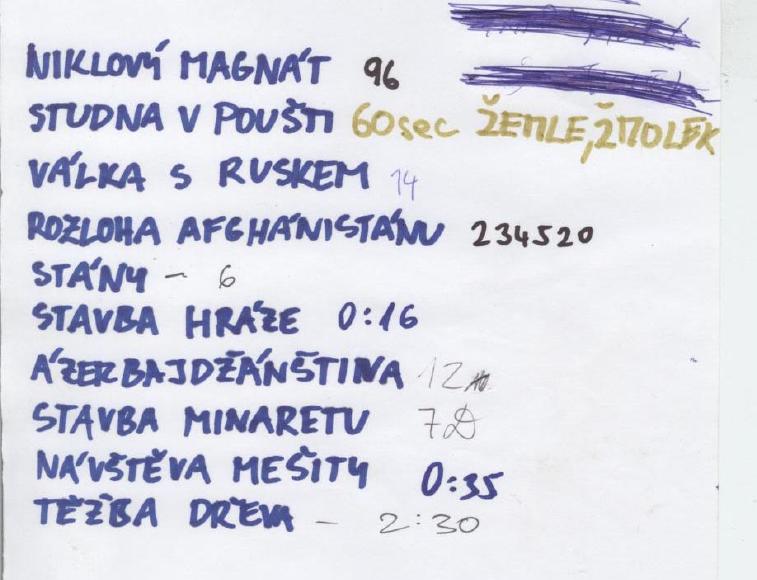 NIKLOVÝ MAGNÁT 96
STUDNA V POUŠTI 60sec ŽEMLE, ŽMOLEK
VÁLKA S RUSKEM 14
ROZLOHA AFGHÁNISTÁNU 234520
STÁNY - 6
STAVBA HRÁZE 0:16
ÁZERBAJDŽÁNŠTINA 12
STAVBA MINARETU 7D
NÁVŠTĚVA MEŠITY 0:35
TĚŽBA DŘEVA - 2:30